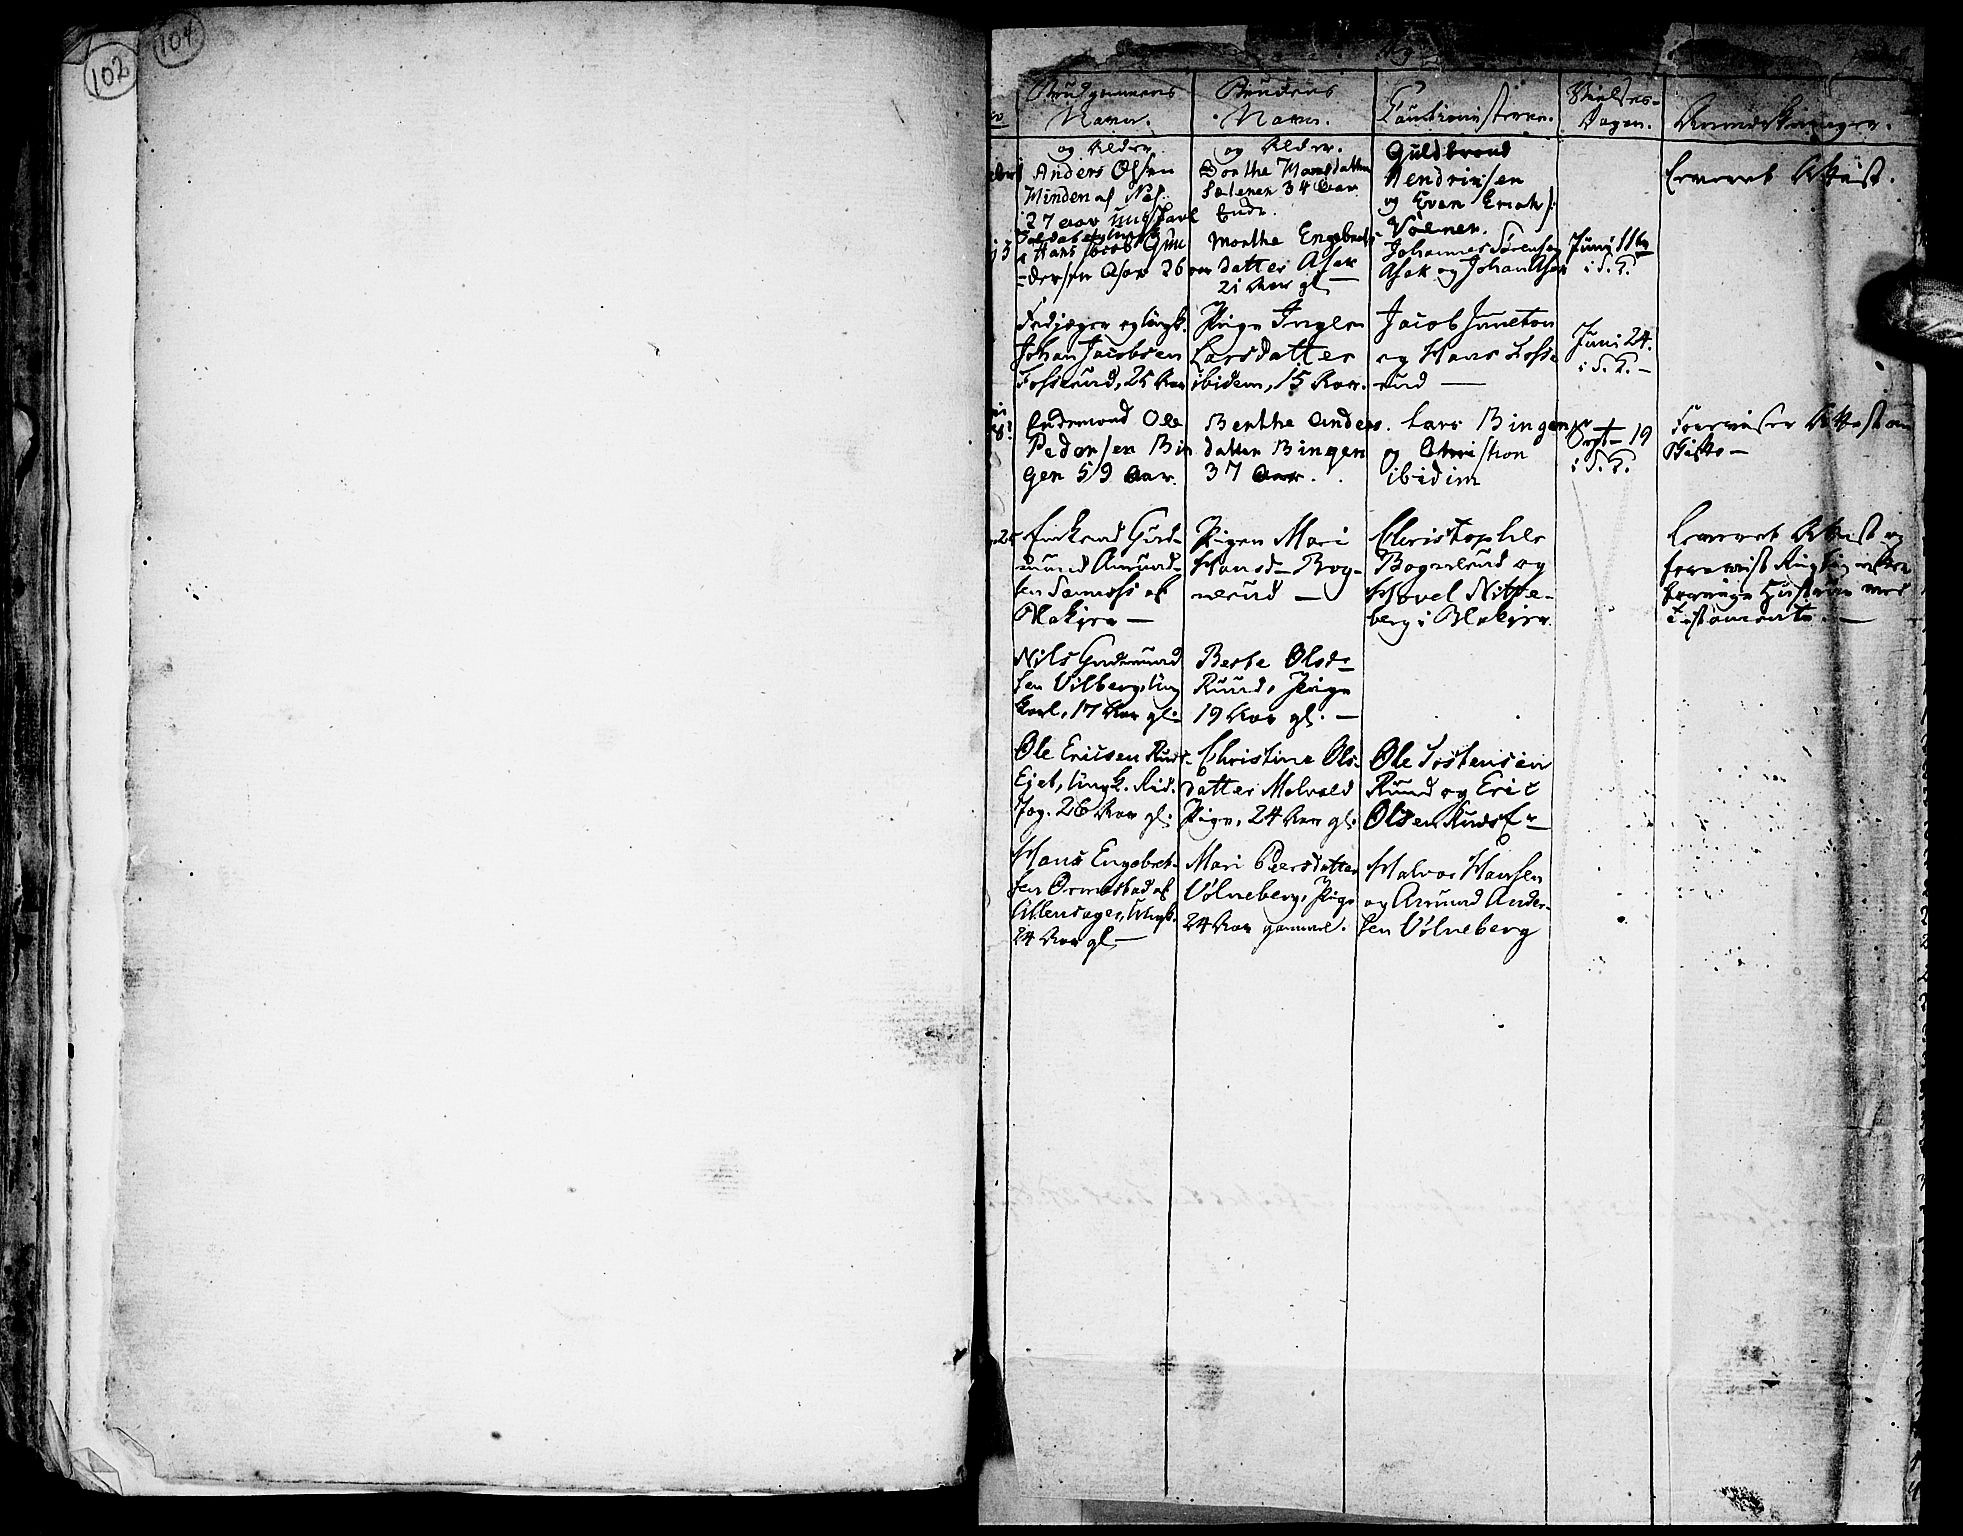 102
104
Brudgommens
Navn.
og Alder.
Brudens
Navn.
og Alder.
Cautionisterne.
Vielses-
Dagen.
Anmærkninger.
Anders Olsen
Minden af Næs
27 aar ungkarl
Dorthe Hansdatter
34 Aar
Enke.
Guldbrand
Hendrichsen
og Even
Leveret Attest.
Hans Jacob Gun
-dersen Asak 26 aar
Marthe Engebrets
datter Asak
21 Aar gl.
Johannes Sørensen
Asak og Johan Asak
Juni 11te
i S. K.
og Ungk.
Johan Jacobsen
Fosserud, 25 Aar
Pige Inger
Larsdatter
ibidem, 15 Aar.
Jacob
og Hans Fosse
rud —
Juni 24.
i S. K. —
Enkemand Ole
Pedersen Bin
gen 59 Aar.
Berthe Anders
datter Bingen
37 Aar.
Lars Bingen
og Christian
ibidim
Sept 19
i S. K.
Attest om
Skifte —
Enkemand Gud-
mund Amund-
sen af
Blakjer —
Pigen Mari
Hansd— Bog-
nerud —
Christopher
Bognerud og
Hovel Nitte-
berg i Blakjer.
Leveret Attest og
Nils Gudmund
sen Vilberg, Ung
karl, 17 Aar gl.
Berte Olsd—
Ruud, Pige
19 Aar gl. —
Ole Ericsen Ruds-
Ejet, Ungk. Rid.
Jæg. 26 Aar gl.
Christine Ols-
datter Melvold
Pige, 24 Aar gl.
Ole Tostensen
Ruud og Eric
Olsen Ruds
Hans Engebret-
sen Ormestad af
Ullensager, Ungk.
24 Aar gl —
Mari Peersdatter
Vølneberg, Pige
24 Aar gammel.
Halvor Hansen
og Amund Ander-
sen Vølneberg